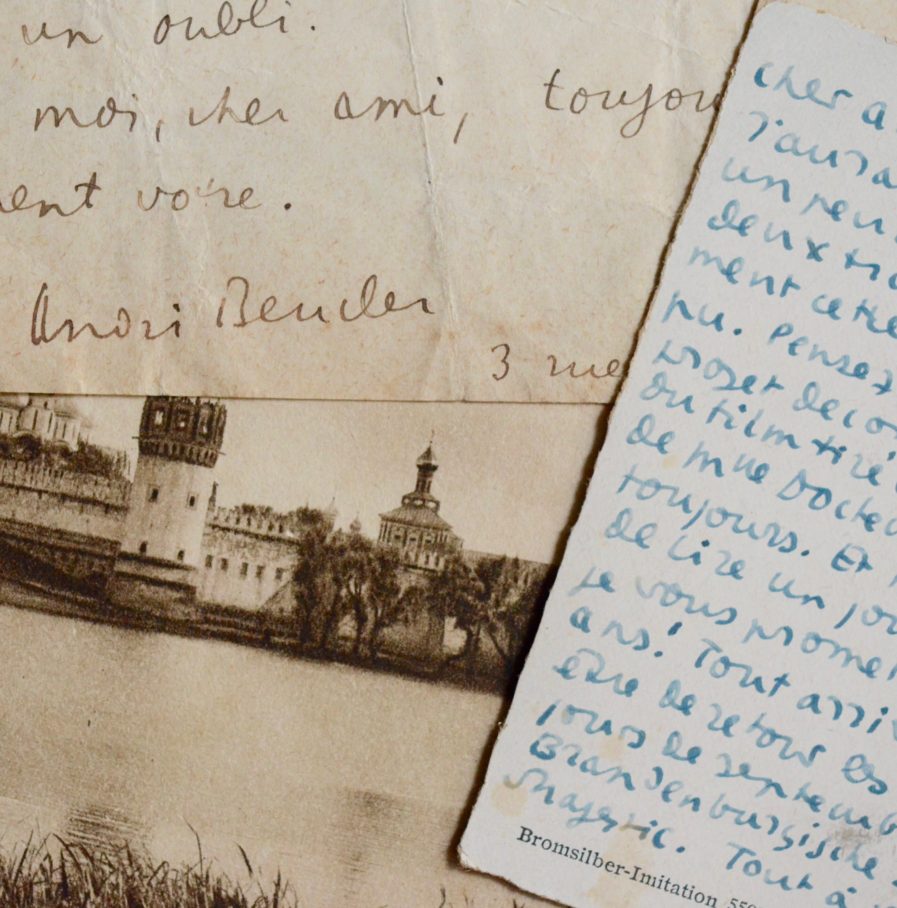 un oubli.
moi, cher ami, toujou
ent votre.
André Beucler
3 rue
cher a
j'aura
un peu
deux tra
ment cette
pu. Pensez
projet de co
du film tiré
de Mlle Docteu
toujours. Et
de lire un jou
je vous promet
ans! Tout arri
être de retour les
jours de septemb
Brandenburgische
Majestic. Tout à
Bromsilber-Imitation